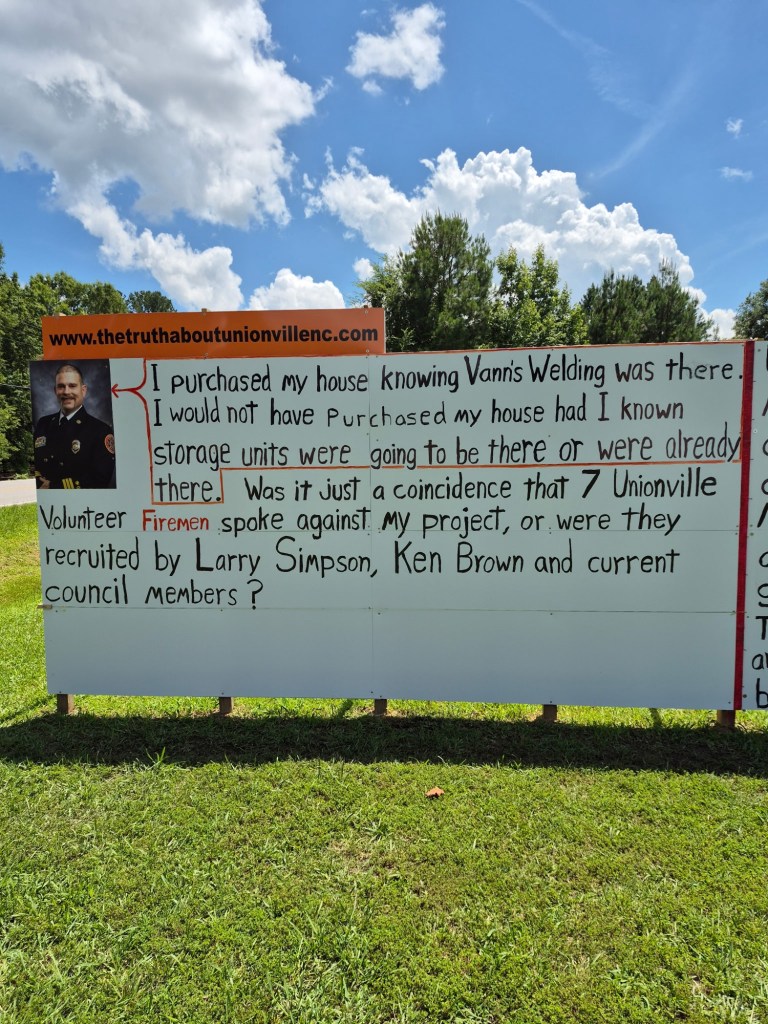 www.thetruthaboutunionvillenc.com
I purchased my house knowing Vann's Welding was there.
I would not have purchased my house had I known
storage units were going to be there or were already
there. Was it just a coincidence that 7 Unionville
Volunteer Firemen spoke against my project, or were they
recruited by Larry Simpson, Ken Brown and current
council members?